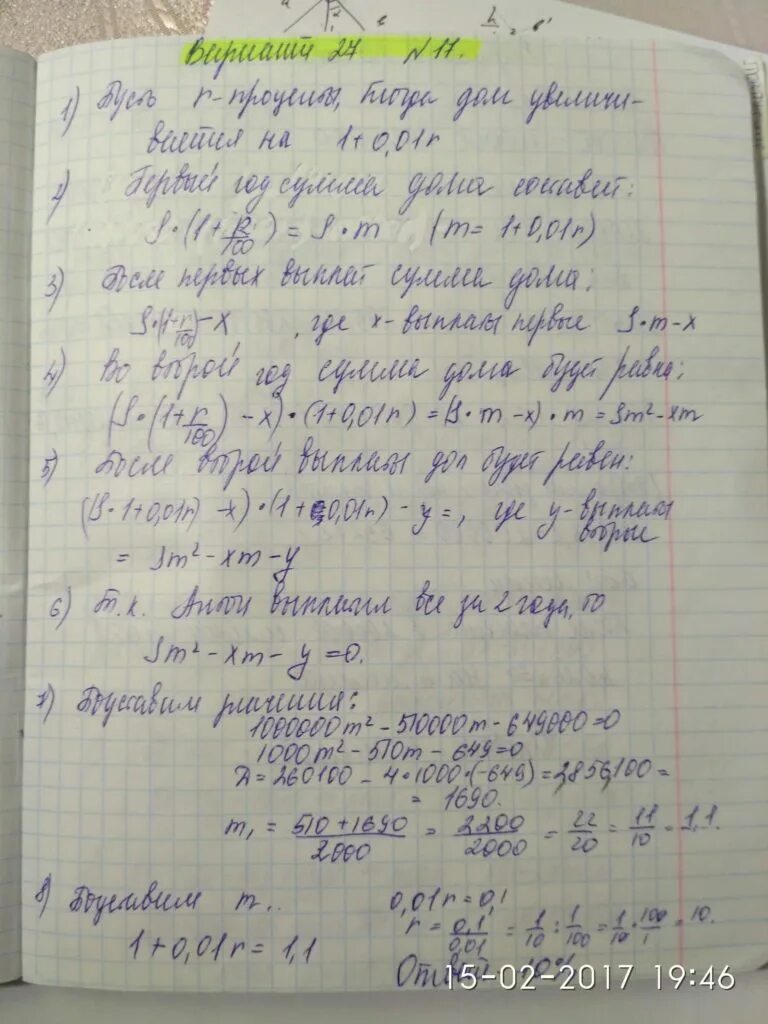 Вариант 27 №17.
1) Пусть r-проценты, тогда долг увеличи-
вается на 1+0,01r
2) Первый год сумма долга составит:
S·(1+r/100) = S·m (m= 1+0,01r)
3) После первых выплат сумма долга:
S·(1+r/100)-x , где x-выплаты первые S·m-x
4) Во второй год сумма долга будет равна:
(S·(1+r/100) -x)·(1+0,01r) = (S·m -x)·m = Sm²-xm
5) После второй выплаты долг будет равен:
(S·1+0,01r) -x)·(1+0,01r) - y =, где y-выплаты
вторые
= Sm²-xm-y
6) Т.к. Антон выплатил все за 2 года, то
Sm²-xm-y=0.
7) Подставим значения:
1000000m²-510000m-649000=0
1000m²-510m-649=0
D=260100-4·1000·(-649)=2856100=
= 1690.
m₁ = 510+1690/2000 = 2200/2000 = 22/20 = 11/10 = 1,1.
8) Подставим m..
1+0,01r=1,1
0,01r=0,1
r = 0,1/0,01 = 1/10 : 1/100 = 1/10 · 100/1 = 10.
Ответ 10%
15-02-2017 19:46